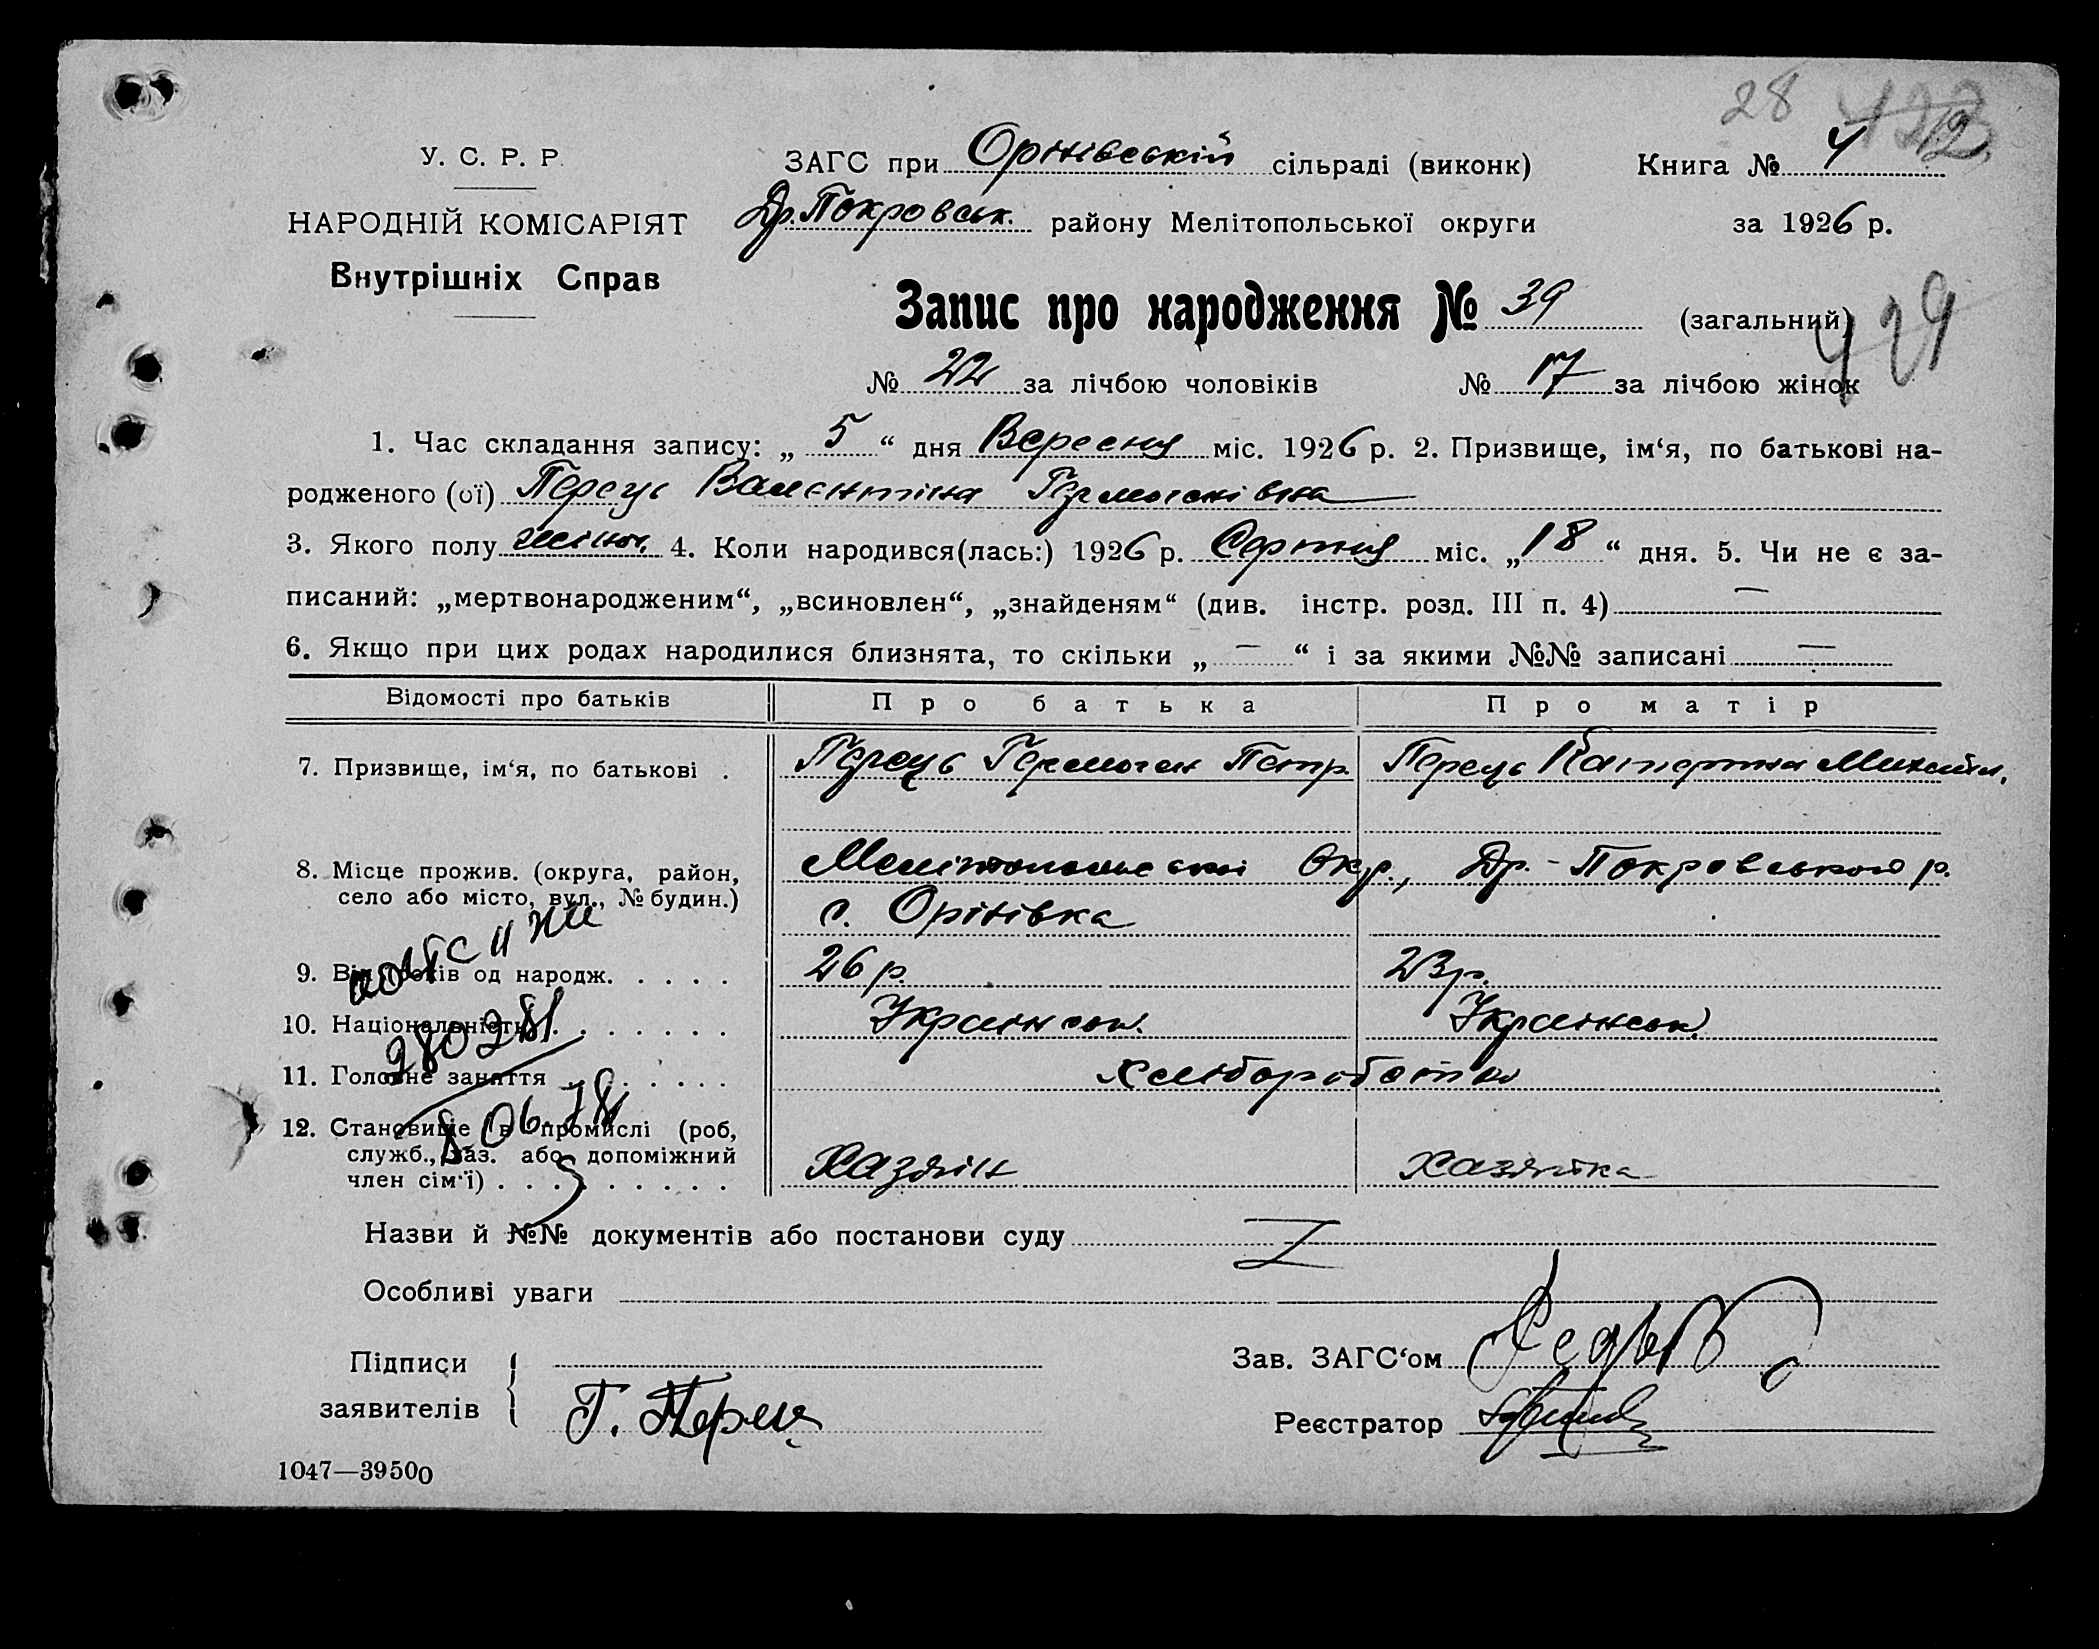 28
У. С. Р. Р.
ЗАГС при Орнівській сільраді (виконк) Книга № 4
НАРОДНІЙ КОМІСАРІЯТ
Др. Покровськ. району Мелітопольської округи за 1926 р.
Внутрішніх Справ
Запис про народження № 39 (загальний)
429
№ 22 за лічбою чоловіків № 17 за лічбою жінок
1. Час складання запису: „ 5 “ дня Вересня міс. 1926 р. 2. Призвище, ім‘я, по батькові на-
родженого (ої) Перець Валентіна Гермогенівна
3. Якого полу жіноч. 4. Коли народився(лась:) 1926 р. Серпня міс. „ 18 “ дня. 5. Чи не є за-
писаний: „мертвонародженим“, „всиновлен“, „знайденям“ (див. інстр. розд. III п. 4) —
6. Якщо при цих родах народилися близнята, то скільки „ — “ і за якими №№ записані —
Відомості про батьків Про батька Про матір
7. Призвище, ім‘я, по батькові . Перець Гермоген Петр Перець Катерина Михайл.
8. Місце прожив. (округа, район, Мелітопольської Окр., Др.-Покровського р.
село або місто, вул., № будин.) с. Орнівка
9. Вік, років од народж. . . . . 26 р. 23 р.
10. Національність . . . . . . . Українськ. Українськ.
11. Головне заняття . . . . . . . хліборобство
12. Становище в промислі (роб,
служб., хаз. або допоміжний
член сім‘ї) . . . . . . . . . . Хазяїн хазяйка
Назви й №№ документів або постанови суду
Особливі уваги
Підписи Зав. ЗАГС‘ом
заявителів Г. Перець Реєстратор
1047—39500